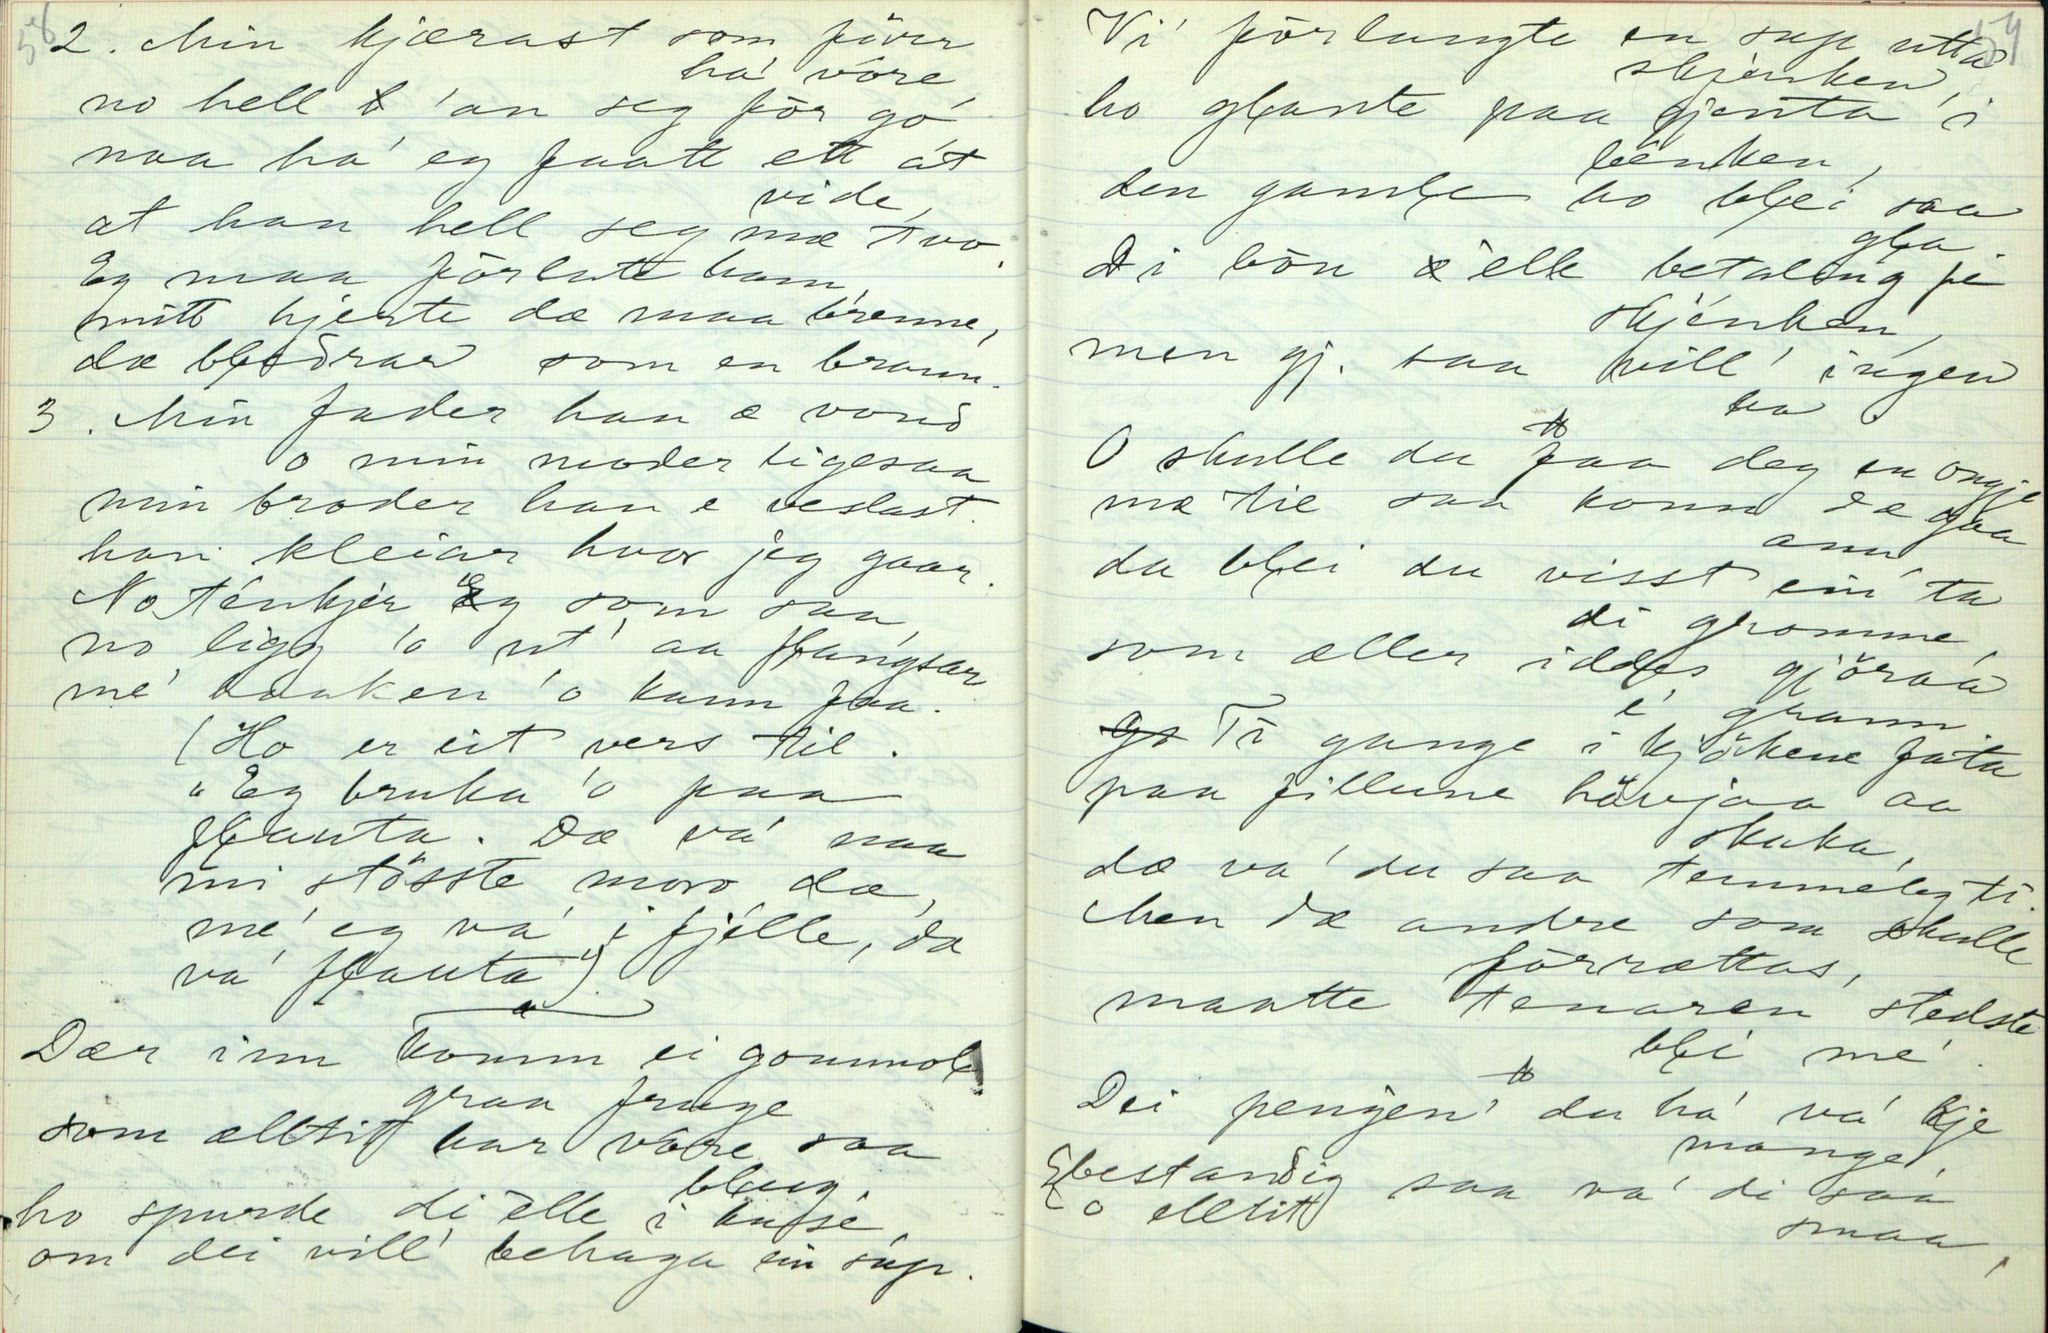 58
2. Min kjærast som förer
ha' vöre
no hell 'an seg för gó
naa ha' eg faatt ett át
vide,
at han hell seg mæ tvo.
Eg maa förlate ham,
mitt hjerte dæ maa brenne,
dæ bløörar som en brann.
3. Min fader han æ vond
o min moder ligesaa
min broder han e veslast.
han kleiar hvor jeg gaar.
No ténkjer Eg som saa,
no ligg 'o ut' aa flangsar
me' haaken 'o kann faa.
(Ho er eit vers til.
"Eg bruka 'o paa
flauta. Dæ va' naa
mi stösste moro dæ,
me' eg va' i fjélle, da
va' flauta")
Dær inn komm ei gommol
graa fruge
som alltit har være saa
bleug
ho spurde di elle i huse
om dei vill' behaga ein sup.
59
Vi förlangte en sup utta
skjenken,
ho glante paa gjenta i
benken,
den gamle ho blei saa
gla
Di bön elle betaling fe
skjénken,
men gj. saa vill' ingen
ha
O skulle du faa deg en ongje
mæ til saa konn dæ gaa
ann
da blei du visst ein ta
di gromme
som aller iddes gjöraa
e' grann
Ti gange i kjökene fata
paa fillune hövjaa aa
skaka,
dæ va' du saa temmeleg ti.
Men dæ andre som skulle
förrættas,
maatte tenaren stedste
bli me'.
Dei pengen' du ha' va' kje
mange,
bestandig saa va' di saa
o elltitt
smaa,